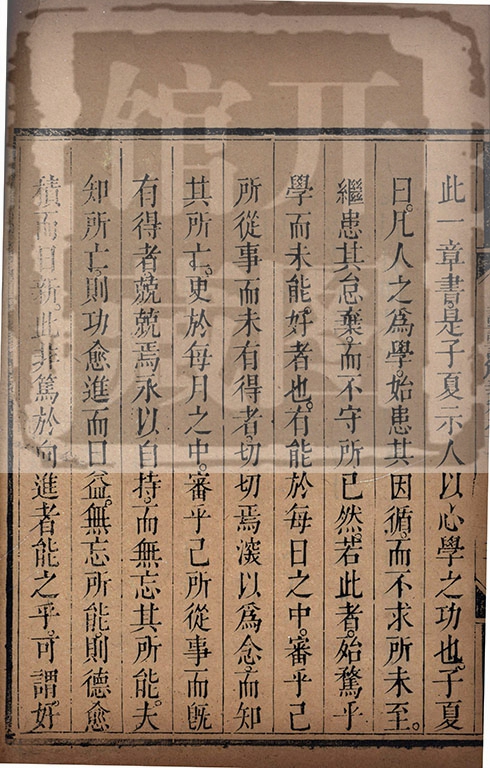 此一章書是子夏示人以心學之功也子夏
曰凡人之爲學始患其因循而不求所未至
繼患其怠棄而不守所已然若此者始騖乎
學而未能好者也有能於每日之中審乎己
所從事而未有得者切切焉深以爲念而知
其所亡更於每月之中審乎己所從事而旣
有得者兢兢焉永以自持而無忘其所能夫
知所亡則功愈進而日益無忘所能則德愈
積而日新此非篤於向進者能之乎可謂好